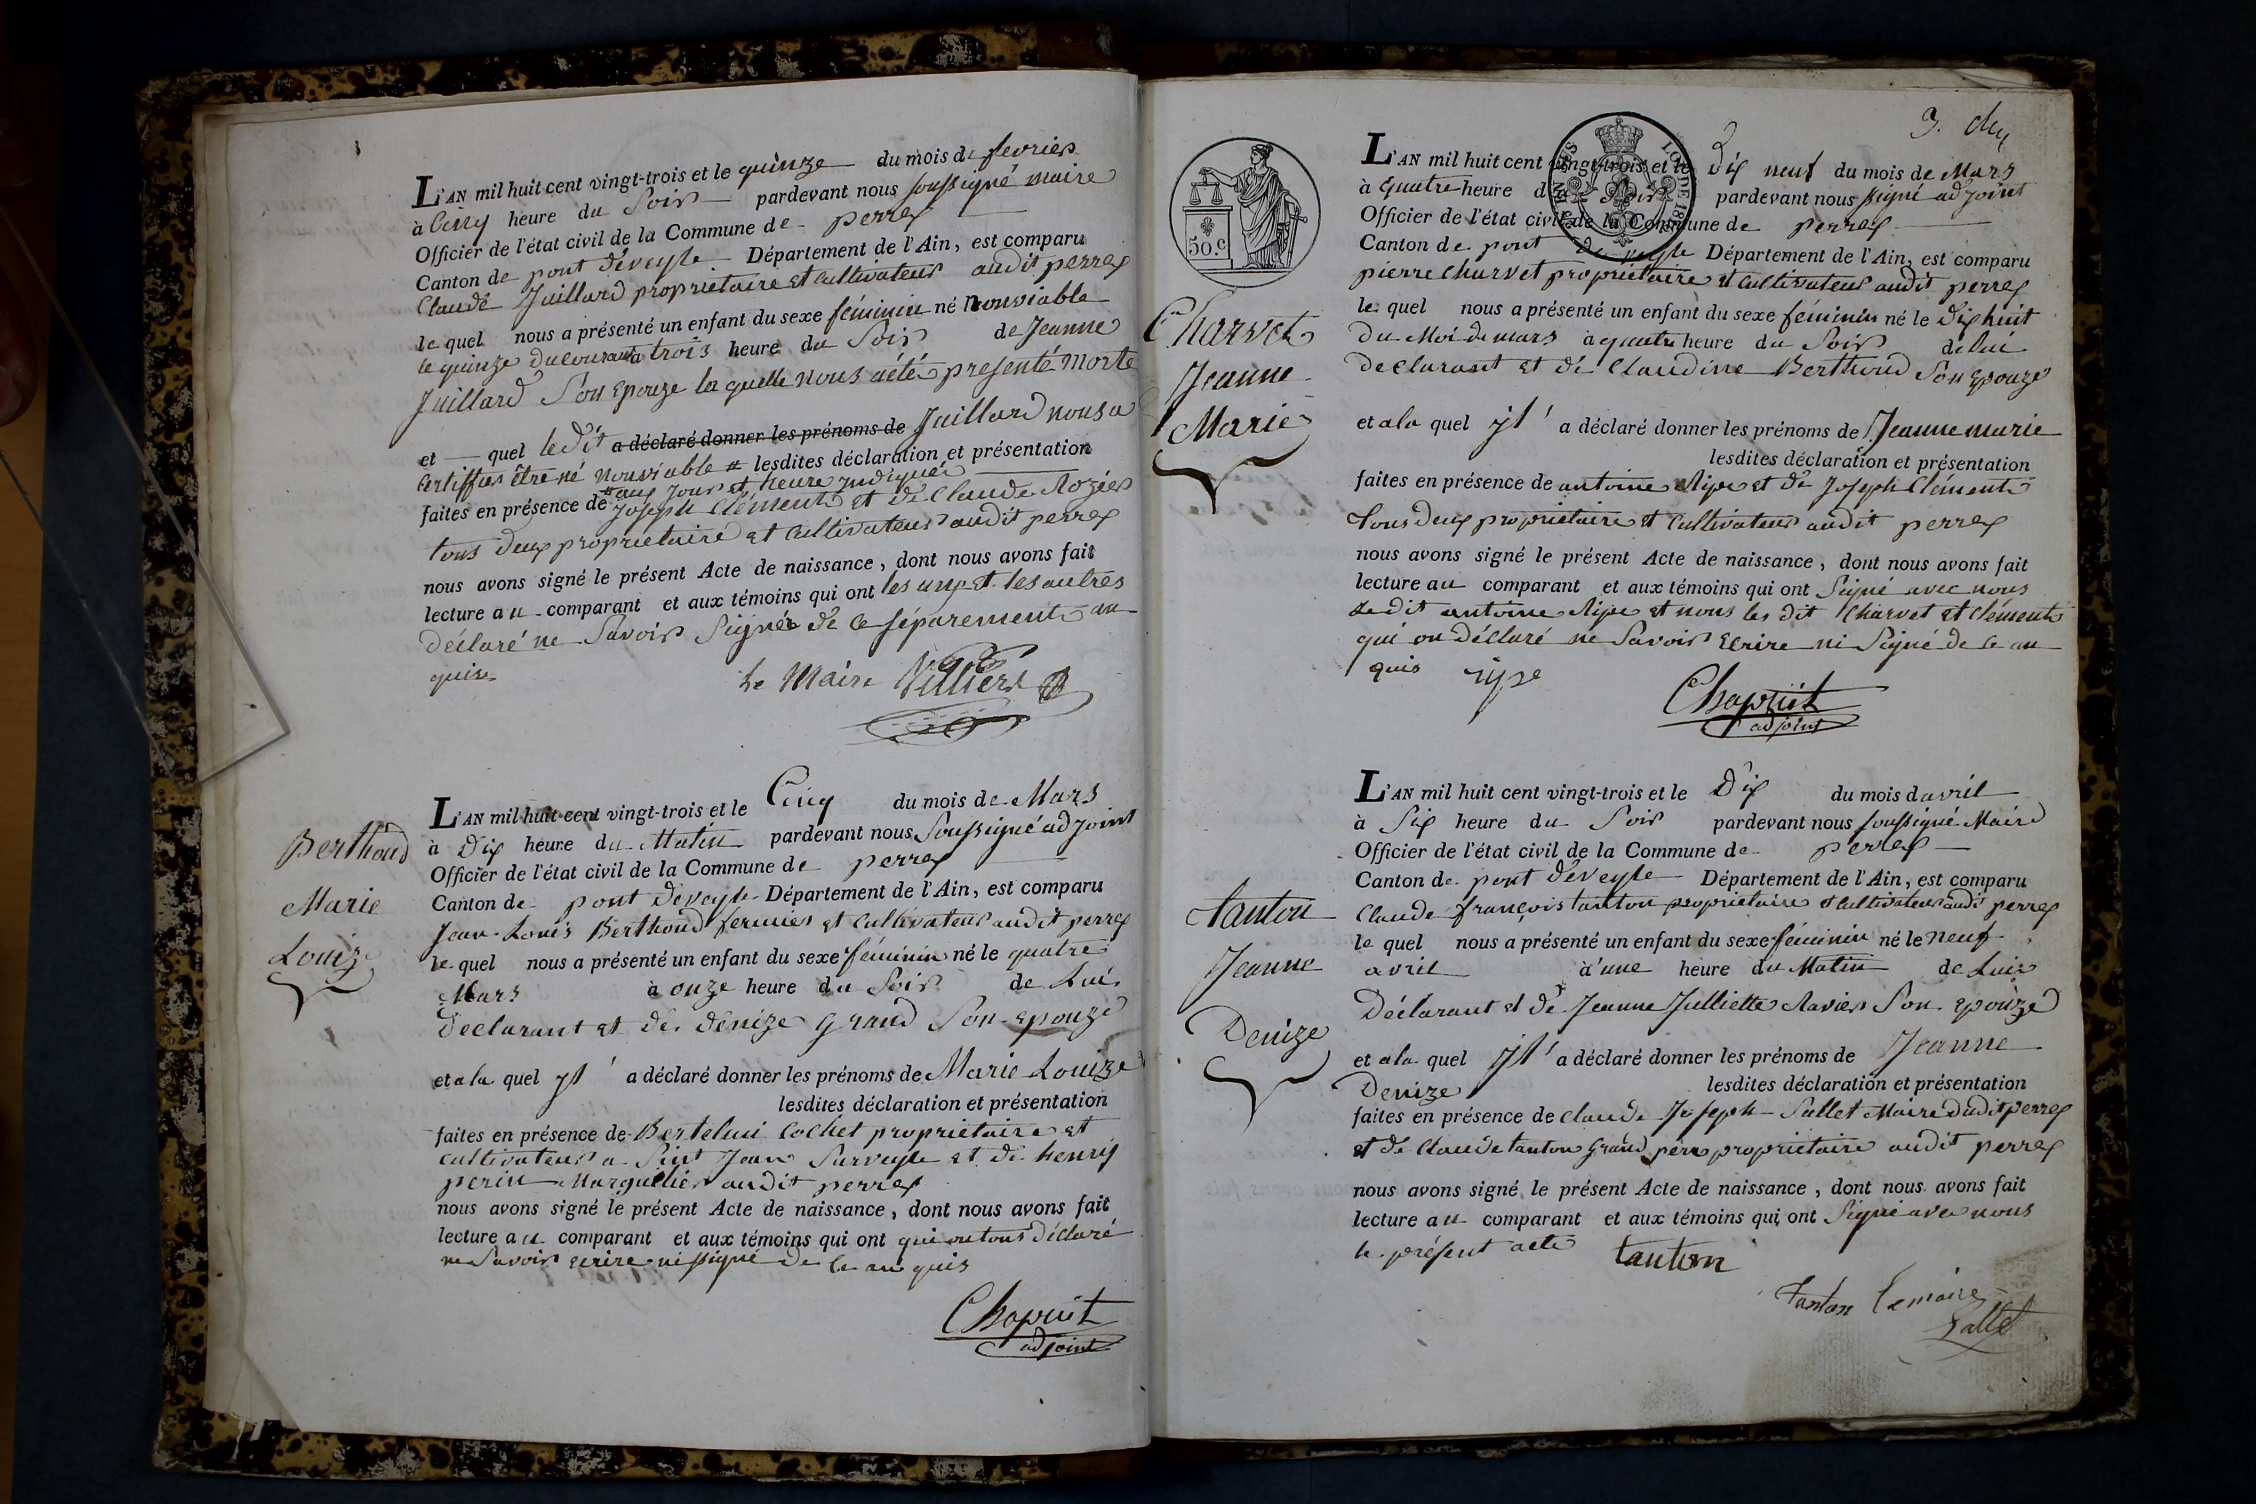 L'AN mil huit cent vingt-trois et le quinze du mois de fevrier
à Cinq heure du Soir pardevant nous soussigné maire
Officier de l'état civil de la Commune de perrex
Canton de pont deveyle Département de l'Ain, est comparu
Claude Juillard proprietaire et Cultivateur audit perrex
le quel nous a présenté un enfant du sexe féminin né Nonviable
le quinze ducourant a trois heure du Soir de Jeanne
Juillard Son Epouze la quelle nous aété presenté Morte
et quel ledit a déclaré donner les prénoms de Juillard nous a
Certiffier être né nonviable # lesdites déclaration et présentation
# aux Jour et heure Indiquée
faites en présence de Joseph Clément et de Claude Rozier
tous deux proprietaire et Cultivateur audit perrex
nous avons signé le présent Acte de naissance, dont nous avons fait
lecture au comparant et aux témoins qui ont les uns et les autres
déclaré ne Savoir Signée de ce séparement au
quis
Le Maire Villiers
Berthoud
Marie
Louize
L'AN mil huit cent vingt-trois et le Cinq du mois de Mars
à Dix heure du Matin pardevant nous Soussigné adjoint
Officier de l'état civil de la Commune de perrex
Canton de pont deveyle Département de l'Ain, est comparu
Jean-Louis Berthoud fermier et Cultivateur audit perrex
le quel nous a présenté un enfant du sexe féminin né le quatre
Mars à onze heure du Soir de Lui
declarant et de denize Grand Son Epouze
et a la quel yl a déclaré donner les prénoms de Marie Louize
lesdites déclaration et présentation
faites en présence de Bertelmi Cochet proprietaire et
cultivateur a Sint Jean Surveyle et de henry
perin Marguelier audit perrex
nous avons signé le présent Acte de naissance, dont nous avons fait
lecture au comparant et aux témoins qui ont qui on tous déclaré
ne Savoir ecrire ni signé de ce au quis
Chapuit
adjoint
3.
50.c
Charvet
Jeanne
Marie
L'AN mil huit cent vingt-trois et le Dix neuf du mois de Mars
à quatre heure du Soir pardevant nous signé adjoint
Officier de l'état civil de la Commune de perrex
Canton de pont de veyle Département de l'Ain, est comparu
pierre Charvet proprietaire et Cultivateur audit perrex
le quel nous a présenté un enfant du sexe féminin né le Dix huit
du Moi de mars à quatre heure du Soir de Lui
declarant et de Claudine Berthoud Son Epouze
et a la quel yl a déclaré donner les prénoms de Jeanne marie
lesdites déclaration et présentation
faites en présence de antoine Ripe et de Joseph Clément
tous deux proprietaire et Cultivateur audit perrex
nous avons signé le présent Acte de naissance, dont nous avons fait
lecture au comparant et aux témoins qui ont Signé avec nous
Ledit antoine Ripe et nous les dit Charvet et Clément
qui on déclaré ne Savoir Ecrire ni Signé de ce au
quis ripe
Chapuit
adjoint
tanton
Jeanne
Denize
L'AN mil huit cent vingt-trois et le Dix du mois d avril
à Six heure du Soir pardevant nous soussigné Maire
Officier de l'état civil de la Commune de perrex
Canton de pont déveyle Département de l'Ain, est comparu
Claude françois tanton proprietaire et Cultivateur audit perrex
le quel nous a présenté un enfant du sexe féminin né le neuf
avril à une heure du Matin de Lui
Déclarant et de Jeanne Julliette Ravier Son Epouze
et a la quel Yl a déclaré donner les prénoms de Jeanne
Denize lesdites déclaration et présentation
faites en présence de Claude Joseph Sallet Maire dudit perrex
et de Claude tanton Grand père proprietaire audit perrex
nous avons signé le présent Acte de naissance, dont nous avons fait
lecture au comparant et aux témoins qui ont Signé avec nous
le présent acte tanton
tanton le maire
Sallet